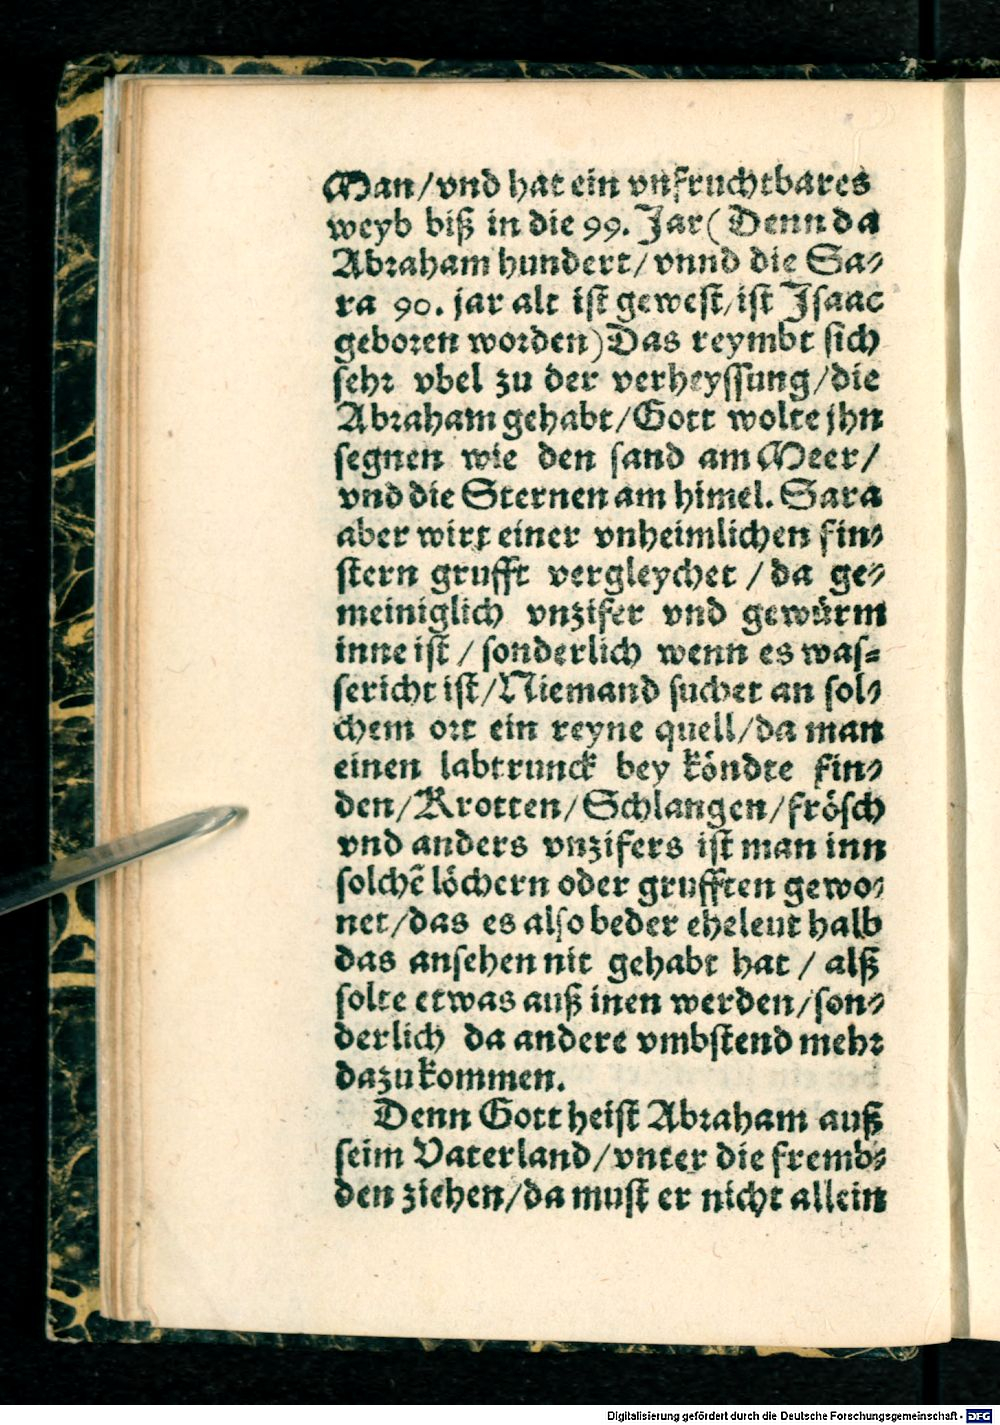 Man/vnd hat ein vnfruchtbares
weyb biß in die 99. Jar( Denn da
Abraham hundert/ vnnd die Sa⸗
ra 90. jar alt ist gewest/ist Isaac
geboren worden) Das reymbt sich
sehr vbel zu der verheyssung/die
Abraham gehabt/Gott wolte jhn
segnen wie den sand am Meer/
vnd die Sternen am himel. Sara
aber wirt einer vnheimlichen fin⸗
stern grufft vergleychet / da ge⸗
meiniglich vnzifer vnd gewürm
inne ist / sonderlich wenn es was⸗
sericht ist/Niemand suchet an sol⸗
chem ort ein reyne quell/da man
einen labtrunck bey köndte fin⸗
den/Krotten/Schlangen/frösch
vnd anders vnzifers ist man inn
solchē löchern oder grufften gewo⸗
net/das es also beder eheleut halb
das ansehen nit gehabt hat / alß
solte etwas auß inen werden/son⸗
derlich da andere vmbstend mehr
dazu kommen.
Denn Gott heist Abraham auß
seim Vaterland/vnter die fremb⸗
den ziehen/da must er nicht allein
Digitalisierung gefördert durch die Deutsche Forschungsgemeinschaft - DFG